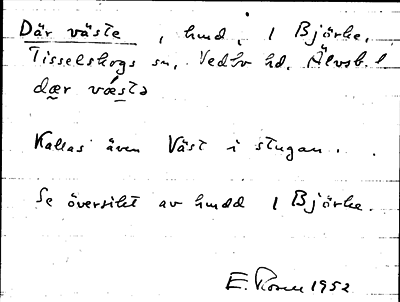 Där väste, hmd, 1 Björke,
Tisselskogs sn, Vedbo hd, Älvsb. l.
dær væsta
Kallas även Väst i stugan.
Se översikt av hmdd 1 Björke.
E. Rosen 1952